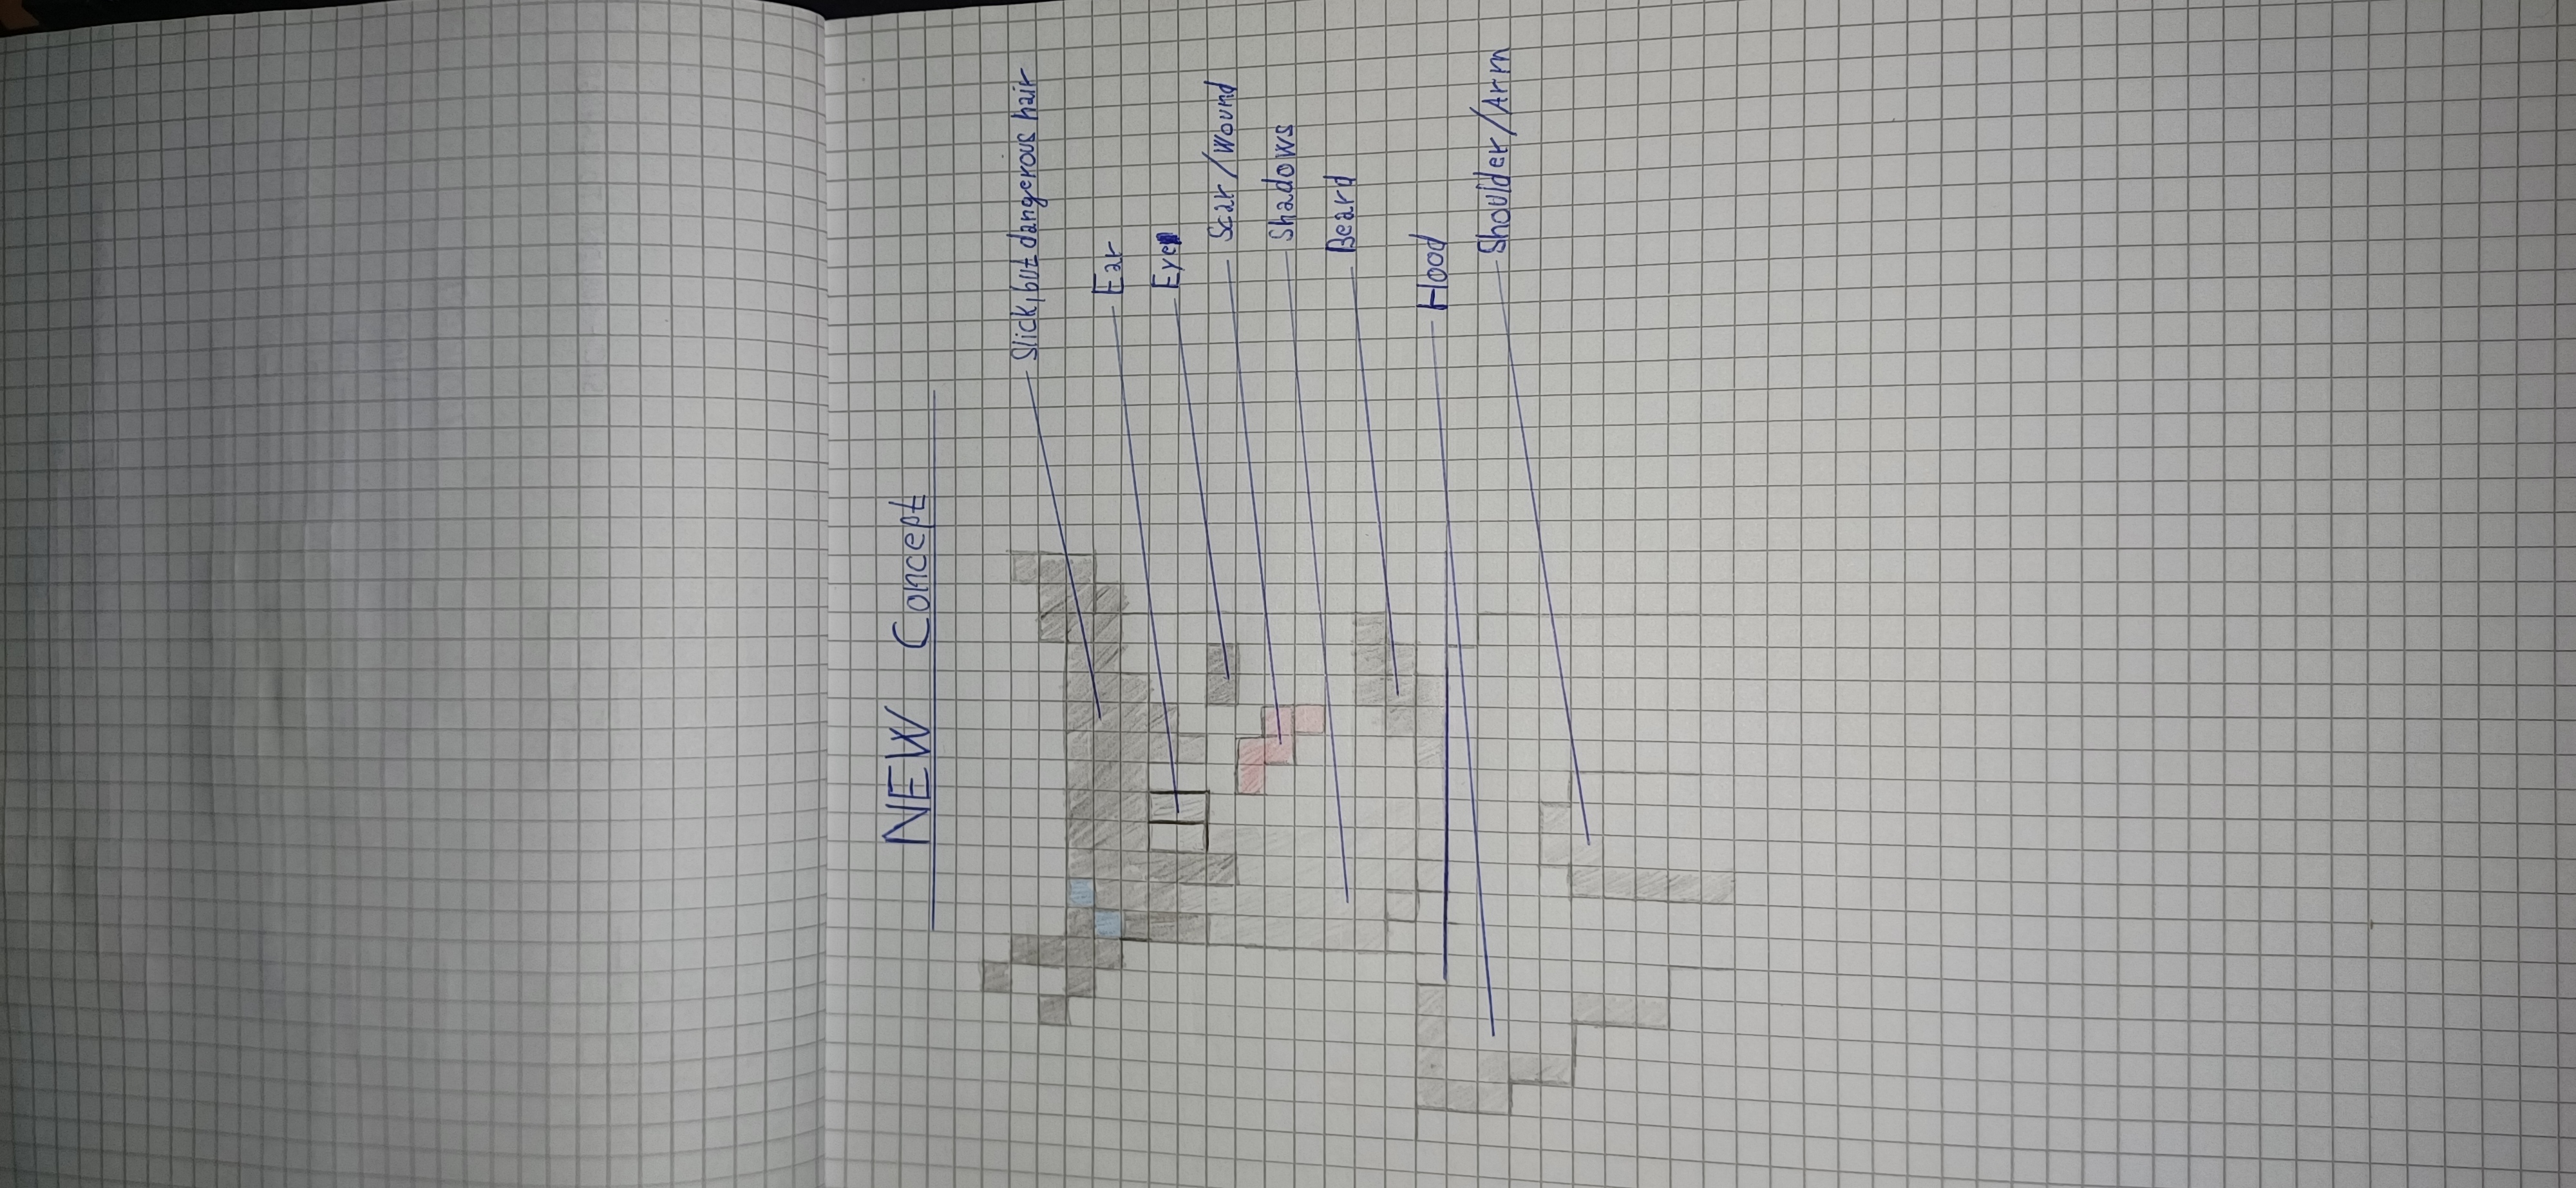 NEW Concept
Slick, but dangerous hair
Ear
Eye
Scar/Wound
Shadows
Beard
Hood
Shoulder/Arm